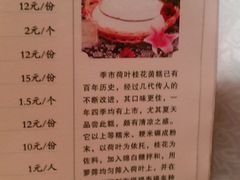 12元/份
2元/个
12元/份
15元/份
1.5元/个
12元/份
10元/份
1元/人
季市荷叶桂花茵糕已有
百年历史，经过几代传人的
不断改进，其口味更佳，一
年四季均有上市，尤其夏天
品尝此糕，颇有清凉之感。
它以上等糯米、粳米碾成粉
末，以荷叶为依托，桂花为
佐料，加入绵白糖拌和，用
箩筛均匀筛在荷叶上，并在